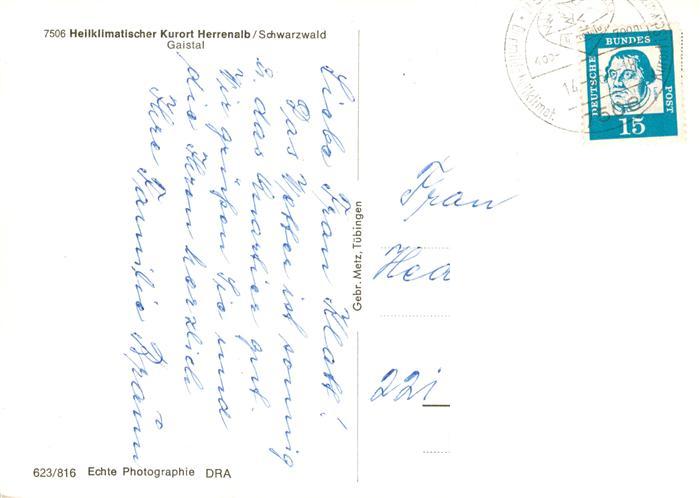 7506 Heilklimatischer Kurort Herrenalb / Schwarzwald
Gaistal
Liebe Frau Klatt!
Das Wetter ist sonnig
u das Quartier gut.
Wir grüßen Sie und
die Ihren herzlich
Ihre Familie Braun
Gebr. Metz, Tübingen
DEUTSCHE BUNDES POST
15
Frau
Hea
22i
623/816 Echte Photographie DRA